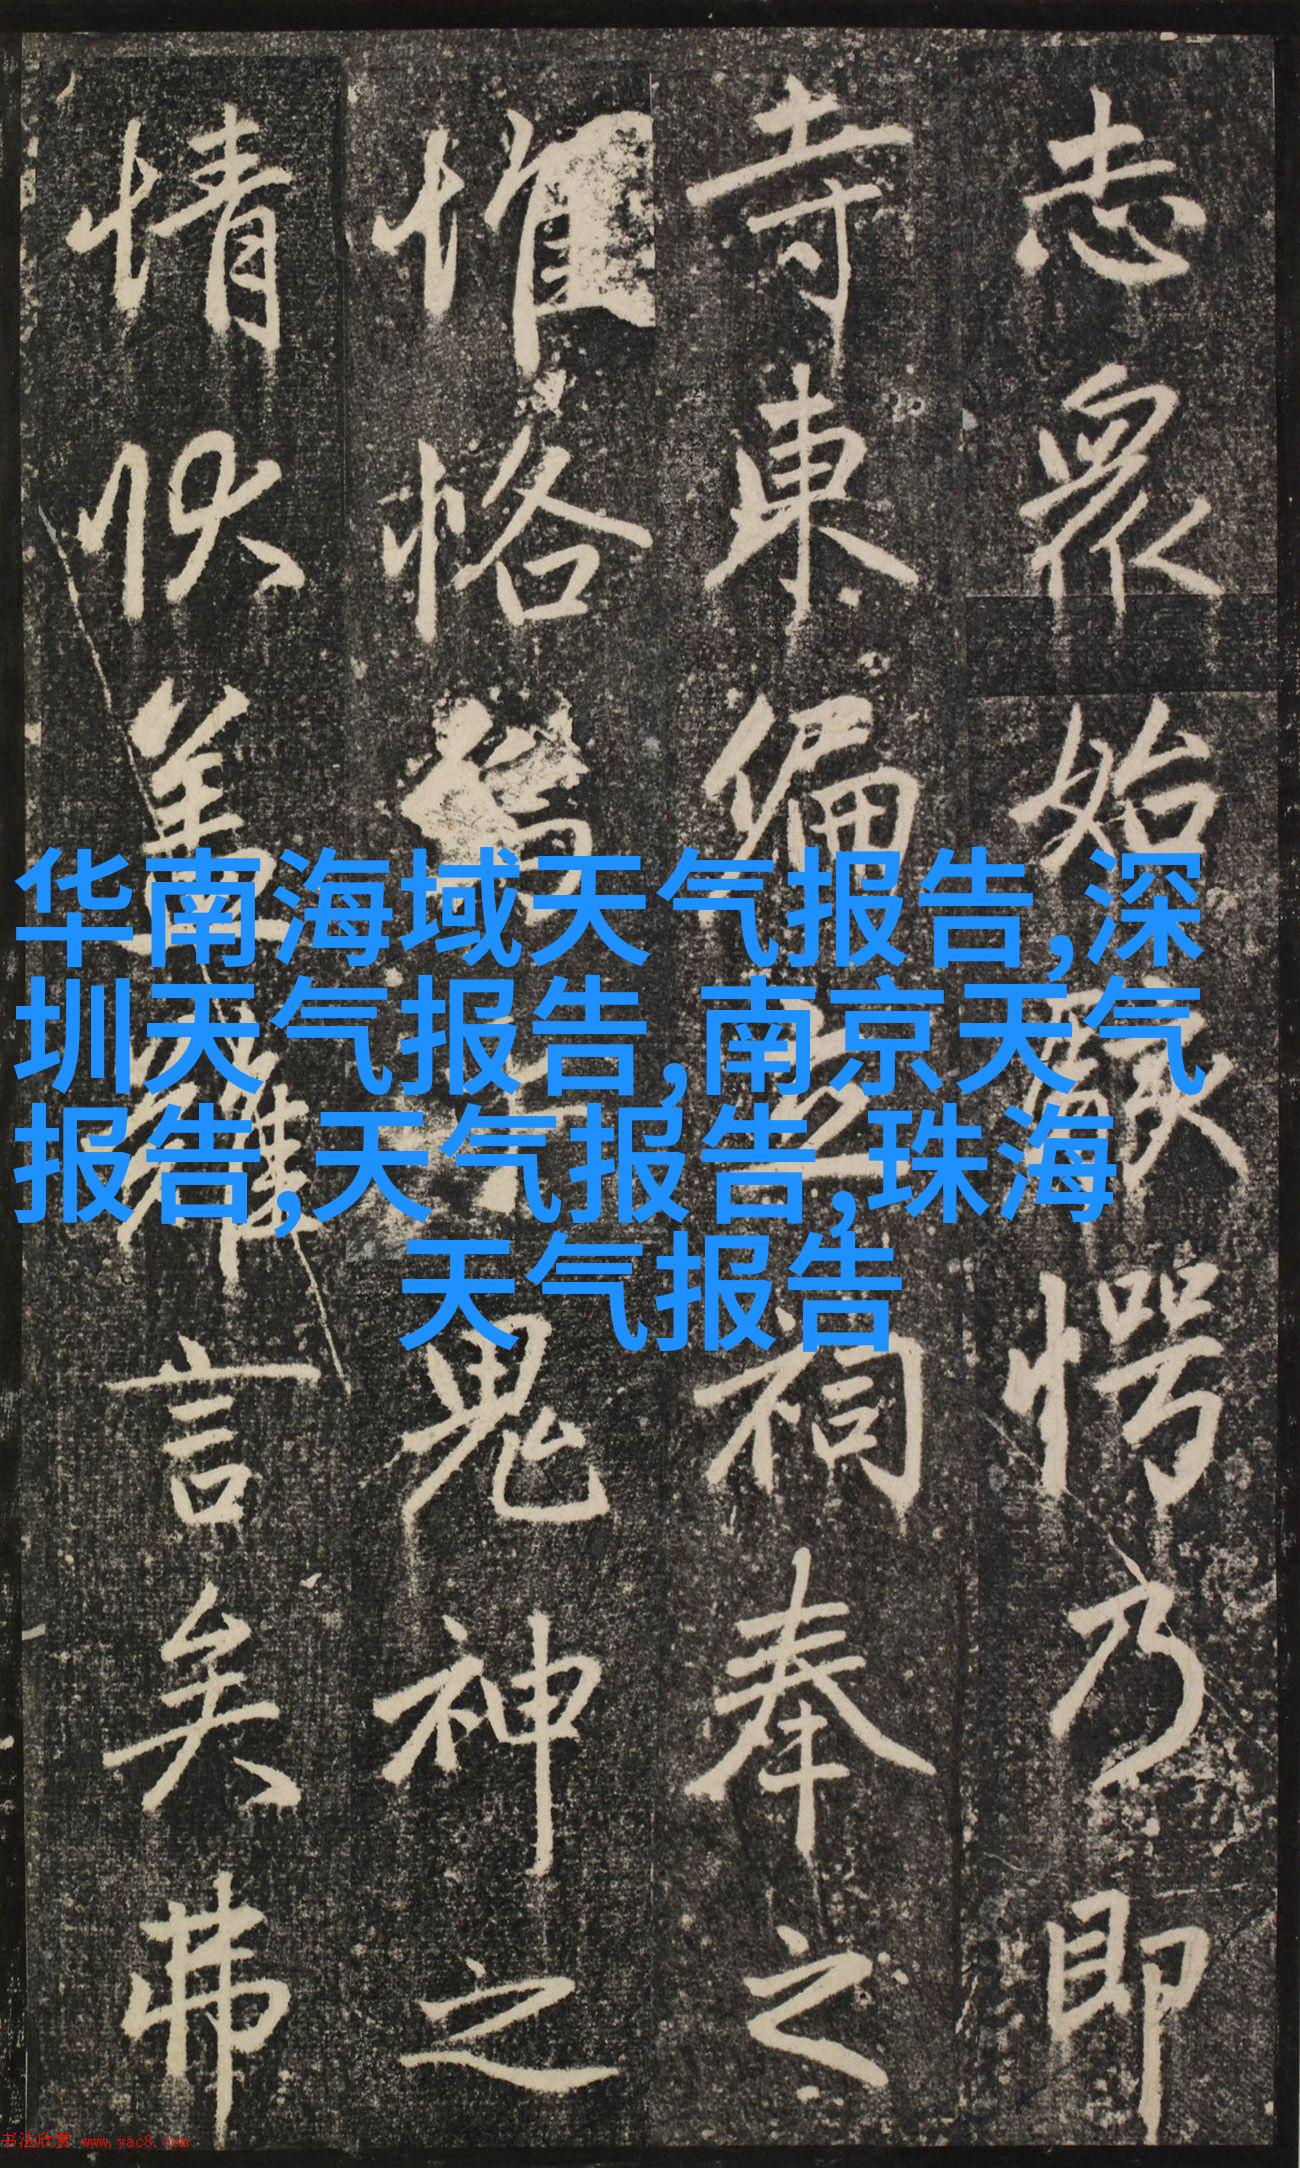 志眾始駭愕乃即
寺東偏立祠奉之
惟恪鬼神之
情狀蓋難言矣弗
华南海域天气报告,深
圳天气报告,南京天气
报告,天气报告,珠海
天气报告
书法欣赏 www.yac8.com